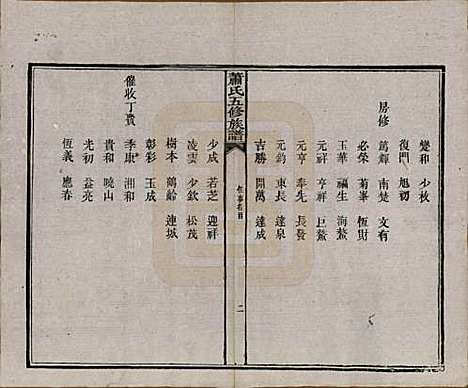 燮和 少枚
復門 旭初
房修
篤輝 南楚 文有
必榮 菊峯 恆財
玉華 福生 海鰲
元祥 亨祥 巨鰲
元亨 奉先 長發
元鈞 東長 達泉
吉勝 開萬 達成
蕭氏五修族譜
二
少成 若芝 迎祥
凌雲 少欽 松茂
樹本 鶴齡 連城
彰彩 玉成
催收丁費
季康 湘和
貴和 曉山
光初 益亮
恆義 應春